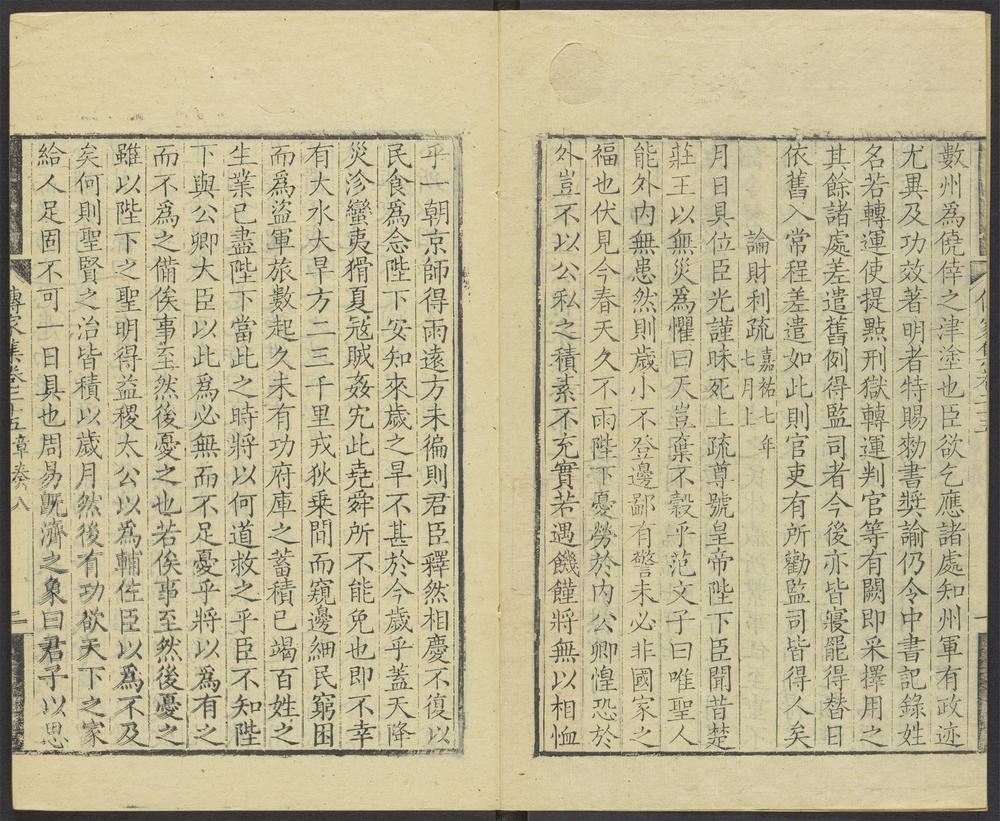 數州爲僥倖之津塗也臣欲乞應諸處知州軍有政迹
尤異及功效著明者特賜勑書奬諭仍令中書記錄姓
名若轉運使提點刑獄轉運判官等有闕即采擇用之
其餘諸處差遣舊例得監司者今後亦皆寢罷得替日
依舊入常程差遣如此則官吏有所勸監司皆得人矣
論財利疏嘉祐七年
七月上
月日具位臣光謹昧死上疏尊號皇帝陛下臣聞昔楚
莊王以無災爲懼曰天豈棄不穀乎范文子曰唯聖人
能外内無患然則歲小不登邊鄙有警未必非國家之
福也伏見今春天久不雨陛下憂勞於内公卿惶恐於
外豈不以公私之積素不充實若遇饑饉將無以相恤
乎一朝京師得雨遠方未徧則君臣釋然相慶不復以
民食爲念陛下安知來歲之旱不甚於今歲乎蓋天降
災沴蠻夷猾夏冦賊姦宄此堯舜所不能免也即不幸
有大水大旱方二三千里戎狄乗間而窺邊細民窮困
而爲盜軍旅數起久未有功府庫之蓄積已竭百姓之
生業已盡陛下當此之時將以何道救之乎臣不知陛
下與公卿大臣以此爲必無而不足憂乎將以爲有之
而不爲之備俟事至然後憂之也若俟事至然後憂之
雖以陛下之聖明得益稷太公以爲輔佐臣以爲不及
矣何則聖賢之治皆積以歲月然後有功欲天下之家
給人足固不可一日具也周易既濟之象曰君子以思
傳家集卷二十五章奏八
二